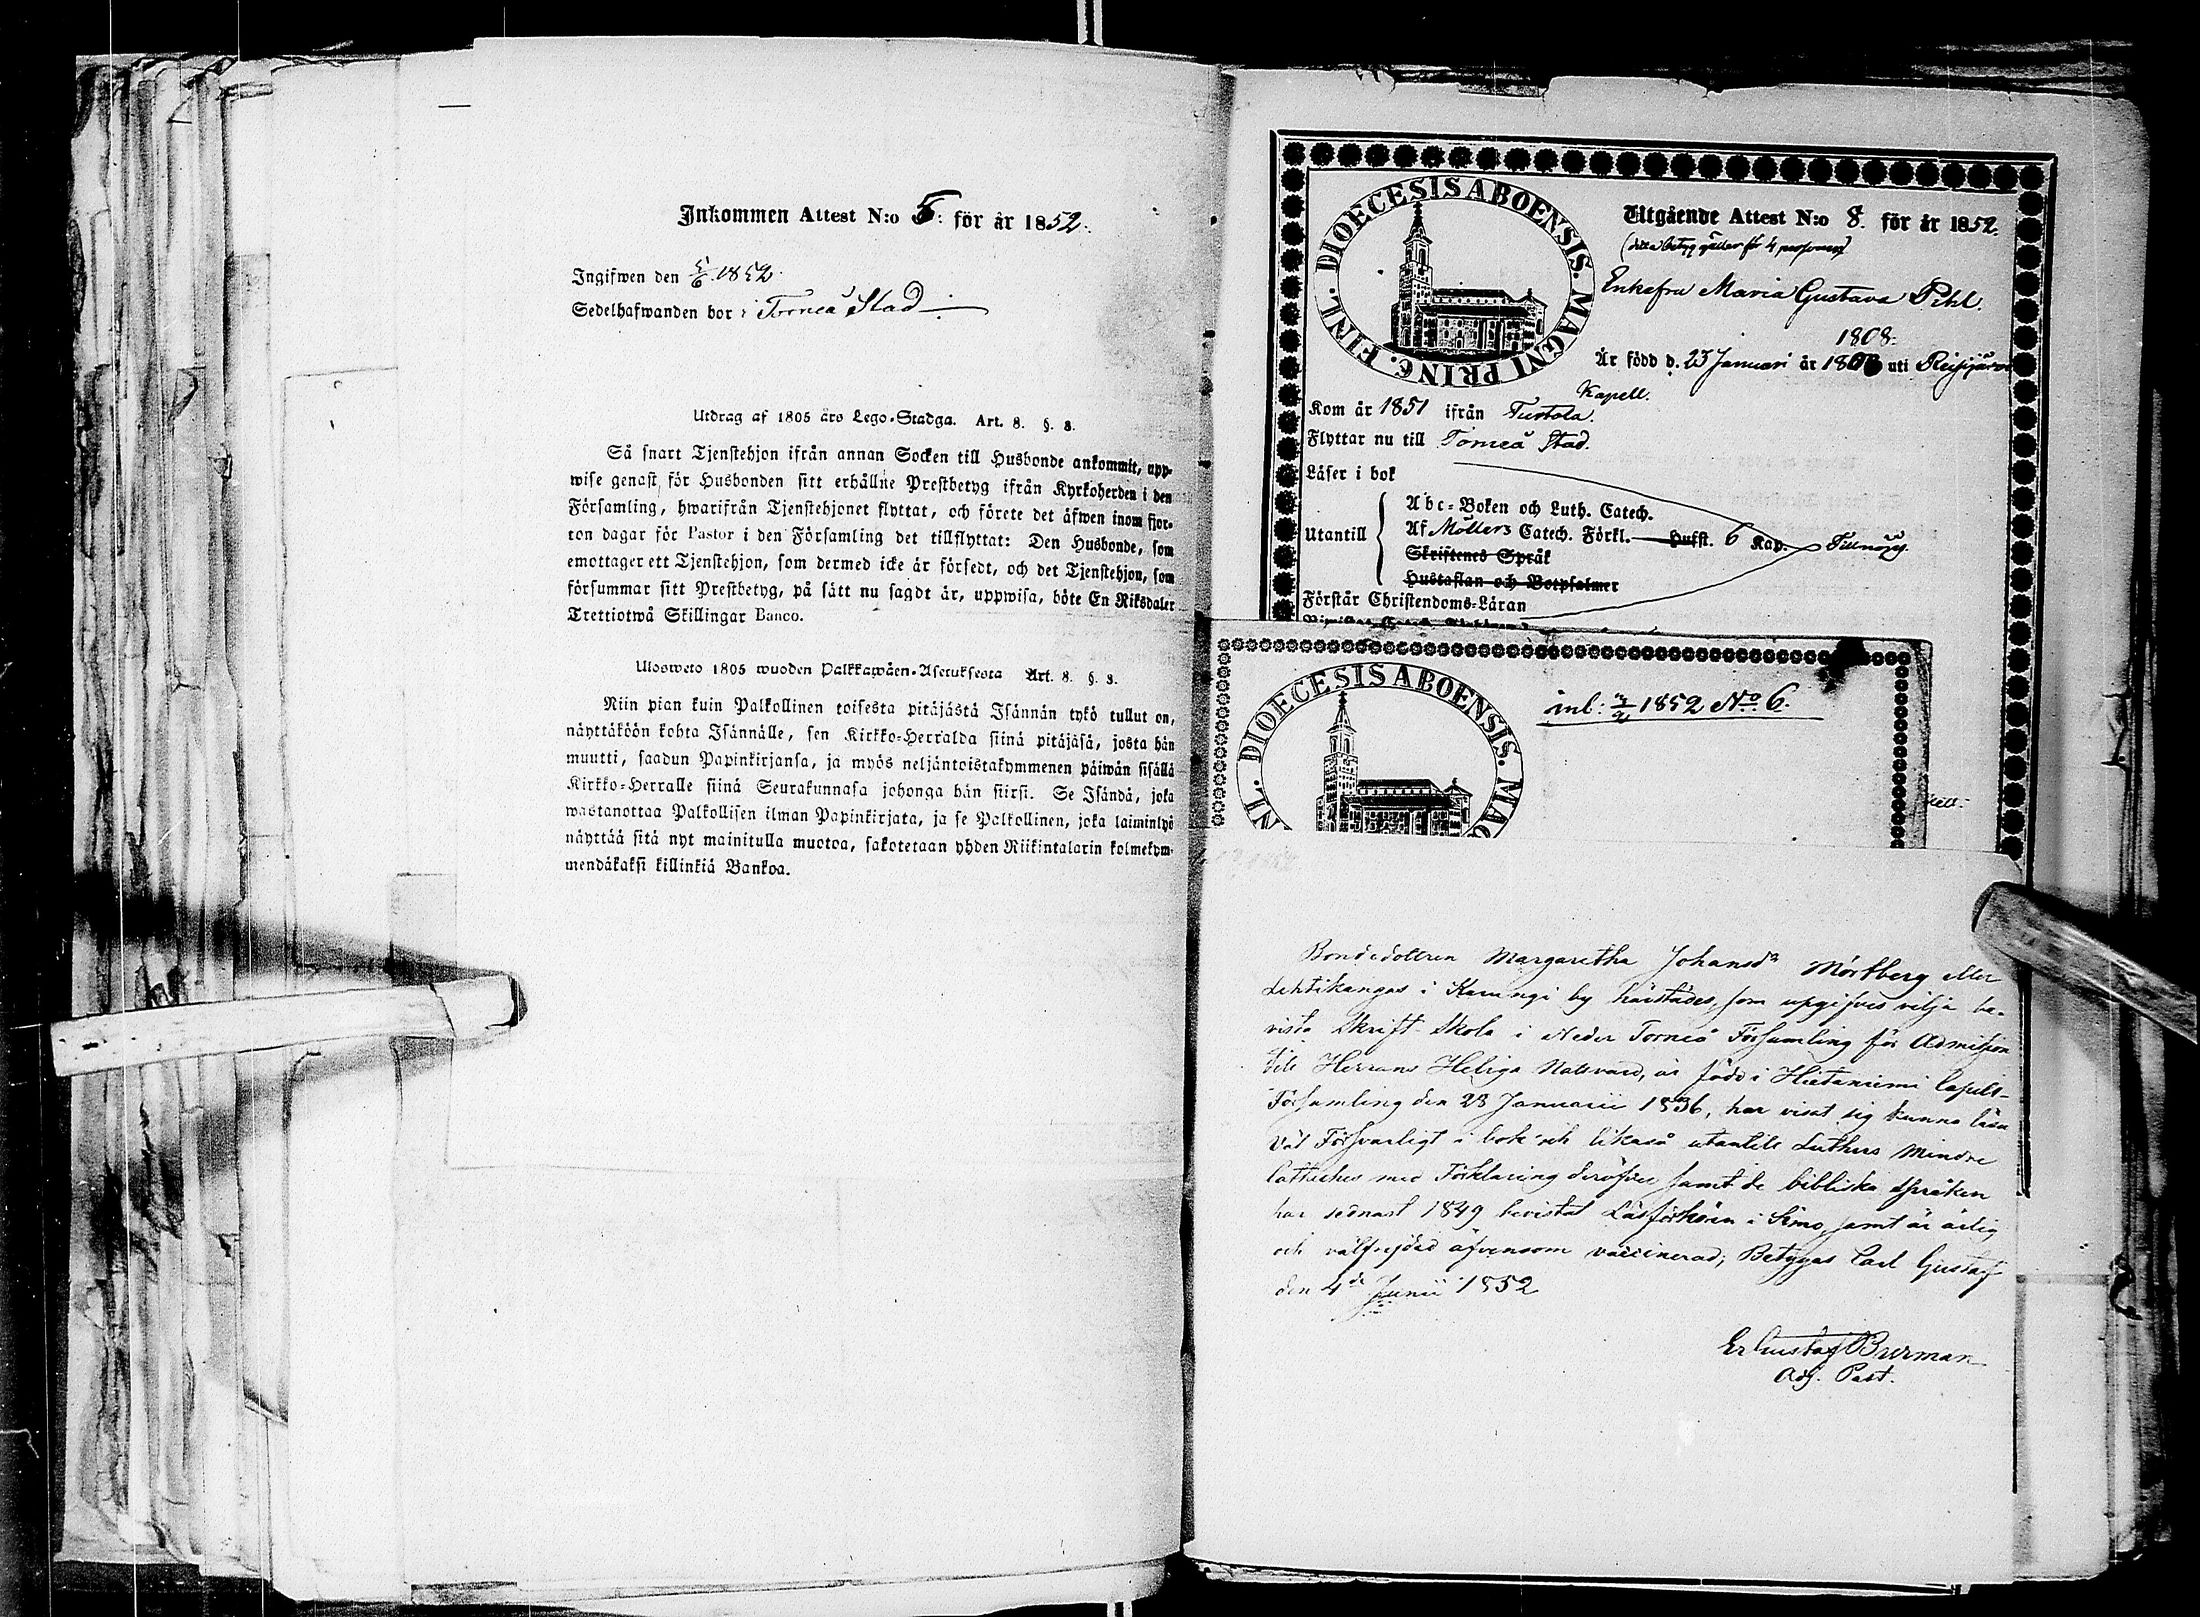 Inkommen Attest N:o 5: för år 1852.
Ingifwen den 5/6 1852.
Sedelhafwanden bor i Torneå Stad
Utdrag af 1805 års Lego-Stadga. Art. 8. §. 8.
Så snart Tjenstehjon ifrån annan Socken till Husbonde ankommit, upp-
wise genast för Husbonden sitt erhållne Prestbetyg ifrån Kyrkoherden i den
Församling, hwarifrån Tjenstehjonet flyttat, och förete det äfwen inom fjor-
ton dagar för Pastor i den Församling det tillflyttat: Den Husbonde, som
emottager ett Tjenstehjon, som dermed icke är försedt, och det Tjenstehjon, som
försummar sitt Prestbetyg, på sätt nu sagdt är, uppwisa, böte En Riksdaler
Trettiotwå Skillingar Banco.
Ulosweto 1805 wuoden Palkkawäen-Asetuksesta Art. 8. §. 8.
Niin pian kuin Palkollinen toisesta pitäjästä Isännän tykö tullut on,
näyttäköön kohta Isännälle, sen Kirkko-Herralda siinä pitäjäsä, josta hän
muutti, saadun Papinkirjansa, ja myös neljäntoistakymmenen päiwän sisällä
Kirkko-Herralle siinä Seurakunnasa johonga hän siirsi. Se Isändä, joka
wastanottaa Palkollisen ilman Papinkirjata, ja se Palkollinen, joka laiminlyö
näyttää sitä nyt mainitulla muotoa, sakotetaan yhden Riikintalarin kolmekym-
mendäkaksi killinkiä Bankoa.
DIOECESIS ABOENSIS. MAGNI PRINC. FINL.
Utgående Attest N:o 8. för år 1852.
(detta betyg gäller för 4 personer)
Enkefru Maria Gustava Pihl.
1808.
Är född d. 23 Januari år 180 uti Reisjärvi
Kapell.
Kom år 1851 ifrån
Flyttar nu till Torneå Stad.
Läser i bok
Utantill
Abc-Boken och Luth. Catech.
Af Möllers Catech. Förkl. Hufst. 6 Kap. Tillnöjs
Skriftenes Språk
Hustaflan och Botpsalmer
Förstår Christendoms-Läran
DIOECESIS ABOENSIS. MAG NL.
inl: 1852 No 6.
Bondedottren Margaretha Johansdr Mörtberg eller
Lehtikangas i Karungi by härstädes, som upgifves vilja be-
vista Skrift-Skola i Neder Torneå Församling för Admission
till Herrans Heliga Nattvard, är född i Hietaniemi Capells-
Församling den 23 Januarii 1836, har visat sig kunna läsa
väl Försvarligt i bok och likaså utantill Luthers Mindre
Catteches med Förklaring deröfver samt de bibliska språken
har sednast 1849 bevistat Läsförhören i Simo, samt är ärlig
och välfrejdad äfvensom vaccinerad; Betygas Carl Gustaf
den 4de Junii 1852
Er. Gustaf Burman
Adj. Past.